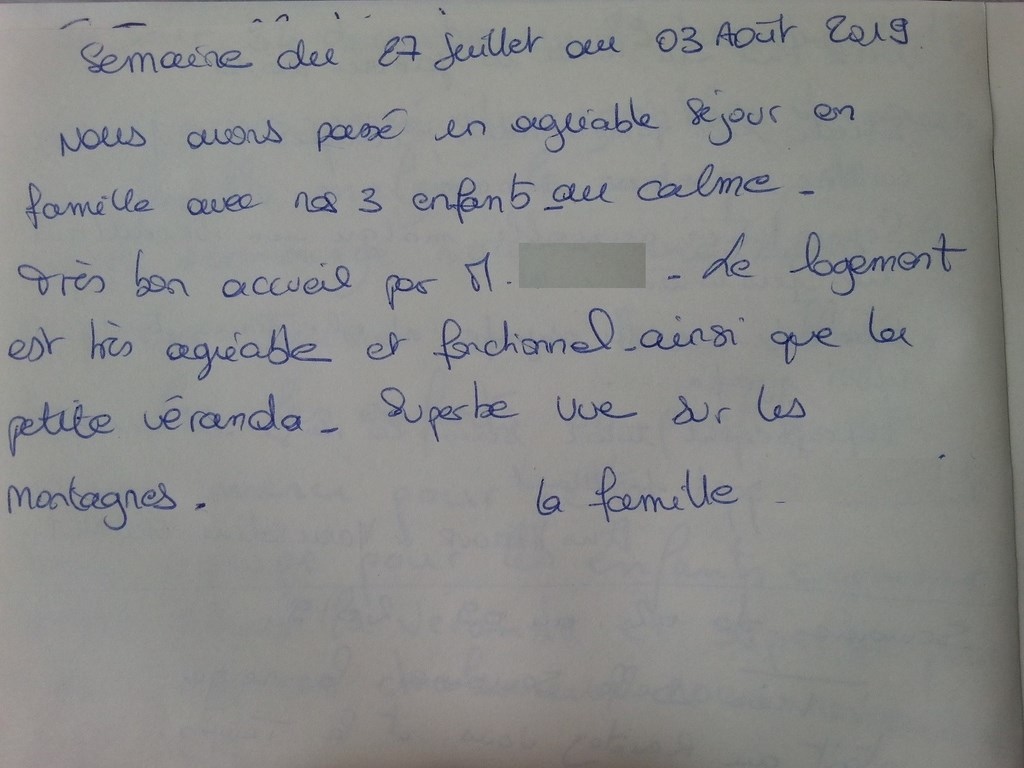 Semaine du 27 Juillet au 03 Août 2019
Nous avons passé un agréable séjour en
famille avec nos 3 enfants au calme -
Très bon accueil par M. - Le logement
est très agréable et fonctionnel - ainsi que la
petite véranda - Superbe vue sur les
montagnes.
la famille -